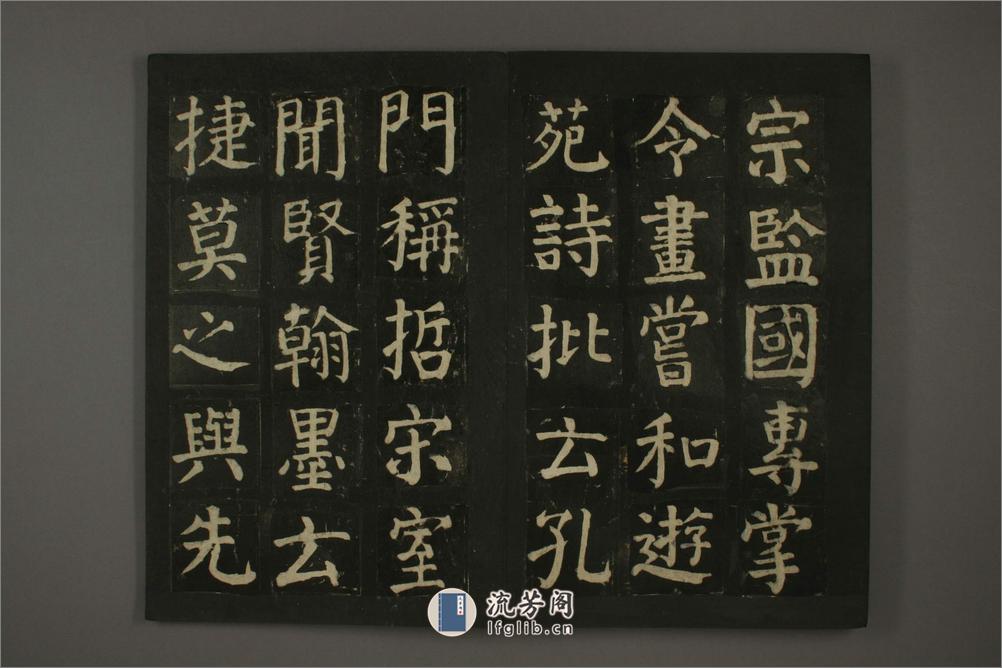 宗監國專掌
令畫嘗和遊
苑詩批云孔
門稱哲宋室
聞賢翰墨云
捷莫之與先
流芳阁
lfglib.cn